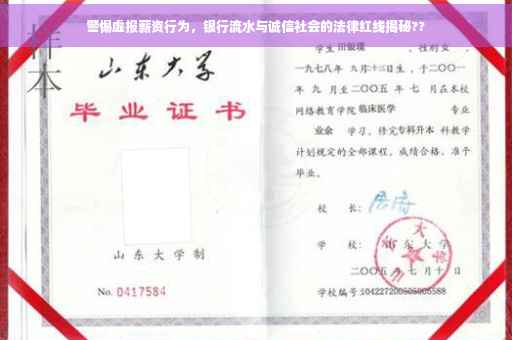 警惕虚报薪资行为，银行流水与诚信社会的法律红线揭秘??
样本
山东大学
毕业证书
山东大学制
No. 0417584
学生 田银璞 ，性别 女 ，
一九七八年 九月十三日生，于二〇〇一
年 九 月至二〇〇五 年 七 月在本校
网络教育学院 临床医学 专业
业余 学习，修完专科升本 科教学
计划规定的全部课程，成绩合格，准予
毕业。
校 长：
学 校： 山东大学
二〇〇五 年 七 月 十 日
学校编号: